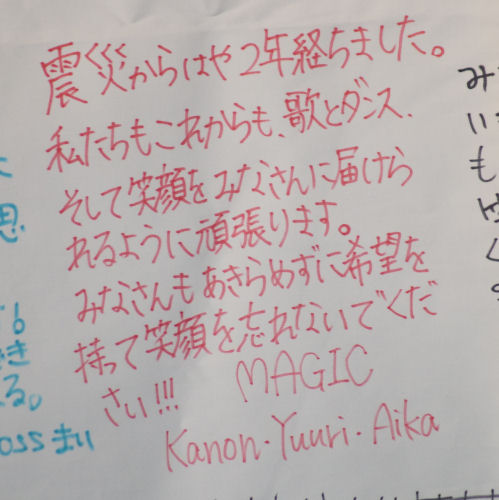 震災からはや2年経ちました。
私たちもこれからも、歌とダンス、
そして笑顔をみなさんに届けら
れるように頑張ります。
みなさんもあきらめずに希望を
持って笑顔を忘れないでくだ
さい!!!
MAGIC
Kanon・Yuuri・Aika
思
き
る。
ossまい
み
い
も
く